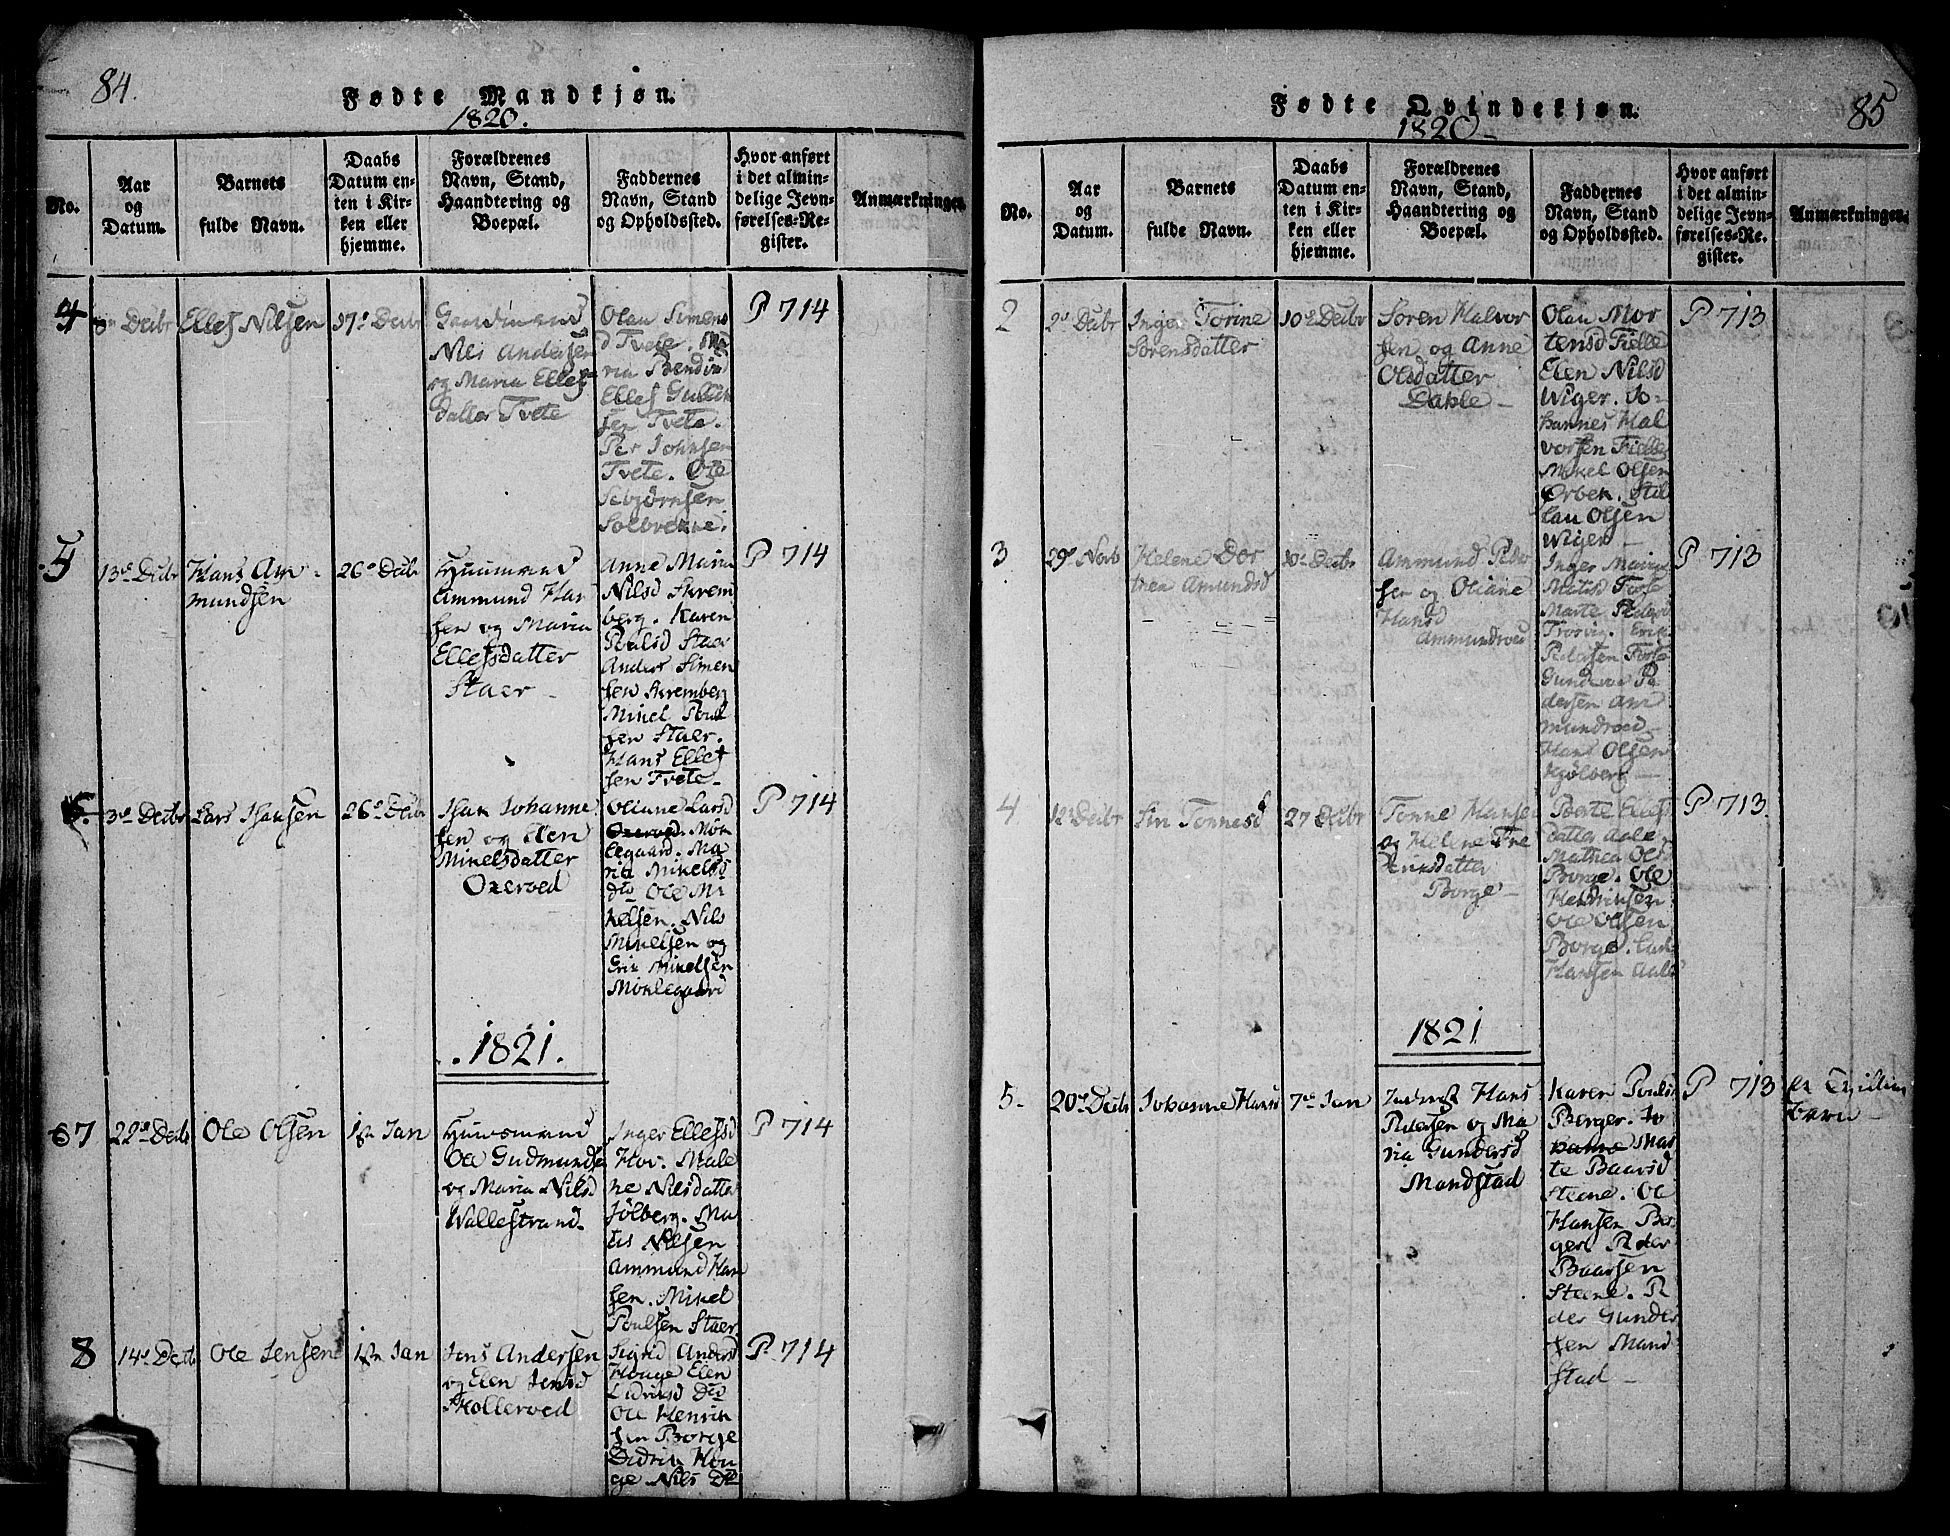 84.
Fødte Mandkjøn.
1820.
No.
Aar
og
Datum.
Barnets
fulde Navn.
Daabs
Datum en-
ten i Kir-
ken eller
hjemme.
Forældrenes
Navn, Stand,
Haandtering og
Boepæl.
Faddernes
Navn, Stand
og Opholdssted.
Hvor anført
i det almin-
delige Jevn-
førelses-Re-
gister.
Anmærkninger.
4
Decbr
Ellef Nilsen
17de Decbr
Gaardmand
Niels Andersen
og Maria Ellefs
datter Tvete
Olau Simens
d Tvete. Ma
ria Bendixd
Ellef Gulich
sen Tvete.
Per Johnsen
Tvete. Ole
Sebjørnsen
Solbrekke.
P 714
5
13de Decbr
Hans Am-
mundsen
26de Decbr
Huusmand
Ammund Han
sen og Maria
Ellefsdatter
Staer
Anne Maria
Nilsd Skrem
berg. Karen
Poulsd Staer
Anders Simen
sen Skremberg
Mikel Poul
sen Staer.
Hans Ellef
sen Tvete
P 714
6.
3de Decbr
Lars Isaksen
26de Decbr
Isak Johanne
sen og Elen
Mikelsdatter
Oxeroed
Oliane Larsd
Oxeroed. Mok
legaard. Ma
ria Mikelsd
Do Ole Mi
kelsen. Nils
Mikelsen og
Erik Mikelsen
Moklegaard
P 714
1821.
7
22de Decbr
Ole Olsen
1ste Jan
Huusmand
Ole Gudmunds
og Maria Nilsd
Wallestrand
Inger Ellefsd
Hov. Male
ne Nilsdatter
Jølberg. Ma
tis Nilsen
Ammund Han
sen. Mikel
Poulsen Staer.
P 714
8
14de Decbr
Ole Jensen
1ste Jan
Jens Andersen
og Elen Jensd
Skolleroed
Sigrid Andersd
Houge Elen
Didriksd Do
Ole Henrik
sen Borge
Didrik Hou
ge Nils Do
P 714
85
Fødte Qvindekjøn.
1820
No.
Aar
og
Datum.
Barnets
fulde Navn.
Daabs
Datum en-
ten i Kir-
ken eller
hjemme.
Forældrenes
Navn, Stand,
Haandtering og
Boepæl.
Faddernes
Navn, Stand
og Opholdssted.
Hvor anført
i det almin-
delige Jevn-
førelses-Re-
gister.
Anmærkninger.
2
2de Decbr
Inger Torine
Sørensdatter
10de Decbr
Søren Halvor
sen og Anne
Olsdatter
Dahle
Olau Mor
tensd Fielle
Elen Nilsd
Wiger. Jo-
hannes Hal
vorsen Fielle
Mikel Olsen
Ørbek. Stil
lau Olsen
Wiger
P 713
3
29de Novb
Helene Dor
trea Amundsd
10de Decbr
Ammund Peder
sen og Oliane
Hansd
Ammundroed
Inger Maria
Matisd Torp
Marte Pedersd
Trosvig. Erik
Pedersen Torp
Gunder Pe
dersen Am
mundroed
Hans Olsen
Kjølberg
P 713
4
12te Decbr
Siri Tonnesd
27 Decbr
Tonne Hansen
og Helene Fre
driksdatter
Borge
Berte Ellefs
datter Aale
Mathea Olsd
Borge. Ole
Hendriksen
Ole Olsen
Borge. Lars
Hansen Aale
P 713.
1821
5.
20de Decb
Johanne Hansd
7de Jan
Hans
Pedersen og Ma
ria Gundersd
Mandstad
Karen Poulsd
Berger. Jo
hanne Mar
te Baarsd
Steene. Ole
Hansen Ber
ger. Peder
Baarsen
Steene. Pe
der Gunder
sen Mand
stad
P 713
er Tvilling
barn